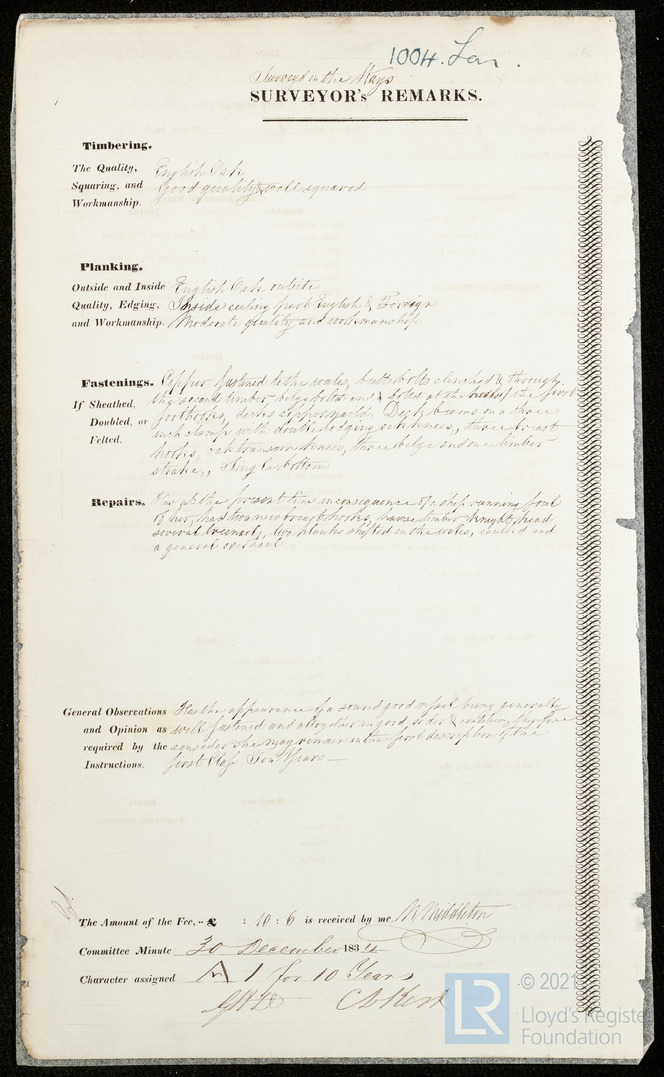 1004. Lon.
Surveyed on the Ways
SURVEYOR's REMARKS.
Timbering.
The Quality, English Oak
Squaring, and Good quality & well squared
Workmanship.
Planking.
Outside and Inside English Oak outside
Quality, Edging, Inside ceiling part English & Foreign
and Workmanship. Moderate quality and workmanship
Fastenings. Copper fastened to the wales, butt bolts clenched & through
If Sheathed, the second timber bilge bolted and bolted at the heads of the first
Doubled, or foothooks, decks copper nail'd. Deck beams on a three
Felted. inch clamp with double lodging oak knees, three breast
hooks, oak transom knees, three bilge and one limber
strake, Single bottom
Repairs. Has at the present time in consequence of a ship running foul
of her, had two new breasthooks, hawse timber, knight head
several treenails, two planks shifted in the wales, caulked and
a general overhaul
General Observations Has the appearance of a sound good vessel being generally
and Opinion as well fastened and altogether in good order & condition, therefore
required by the consider she may remain in the first description of the
Instructions. first Class Ten Years
The Amount of the Fee, £ : 10 : 6 is received by me, M Middleton
Committee Minute 30 December 1834
Character assigned A 1 for 10 Years
© 2021
LR
Lloyd's Register
Foundation